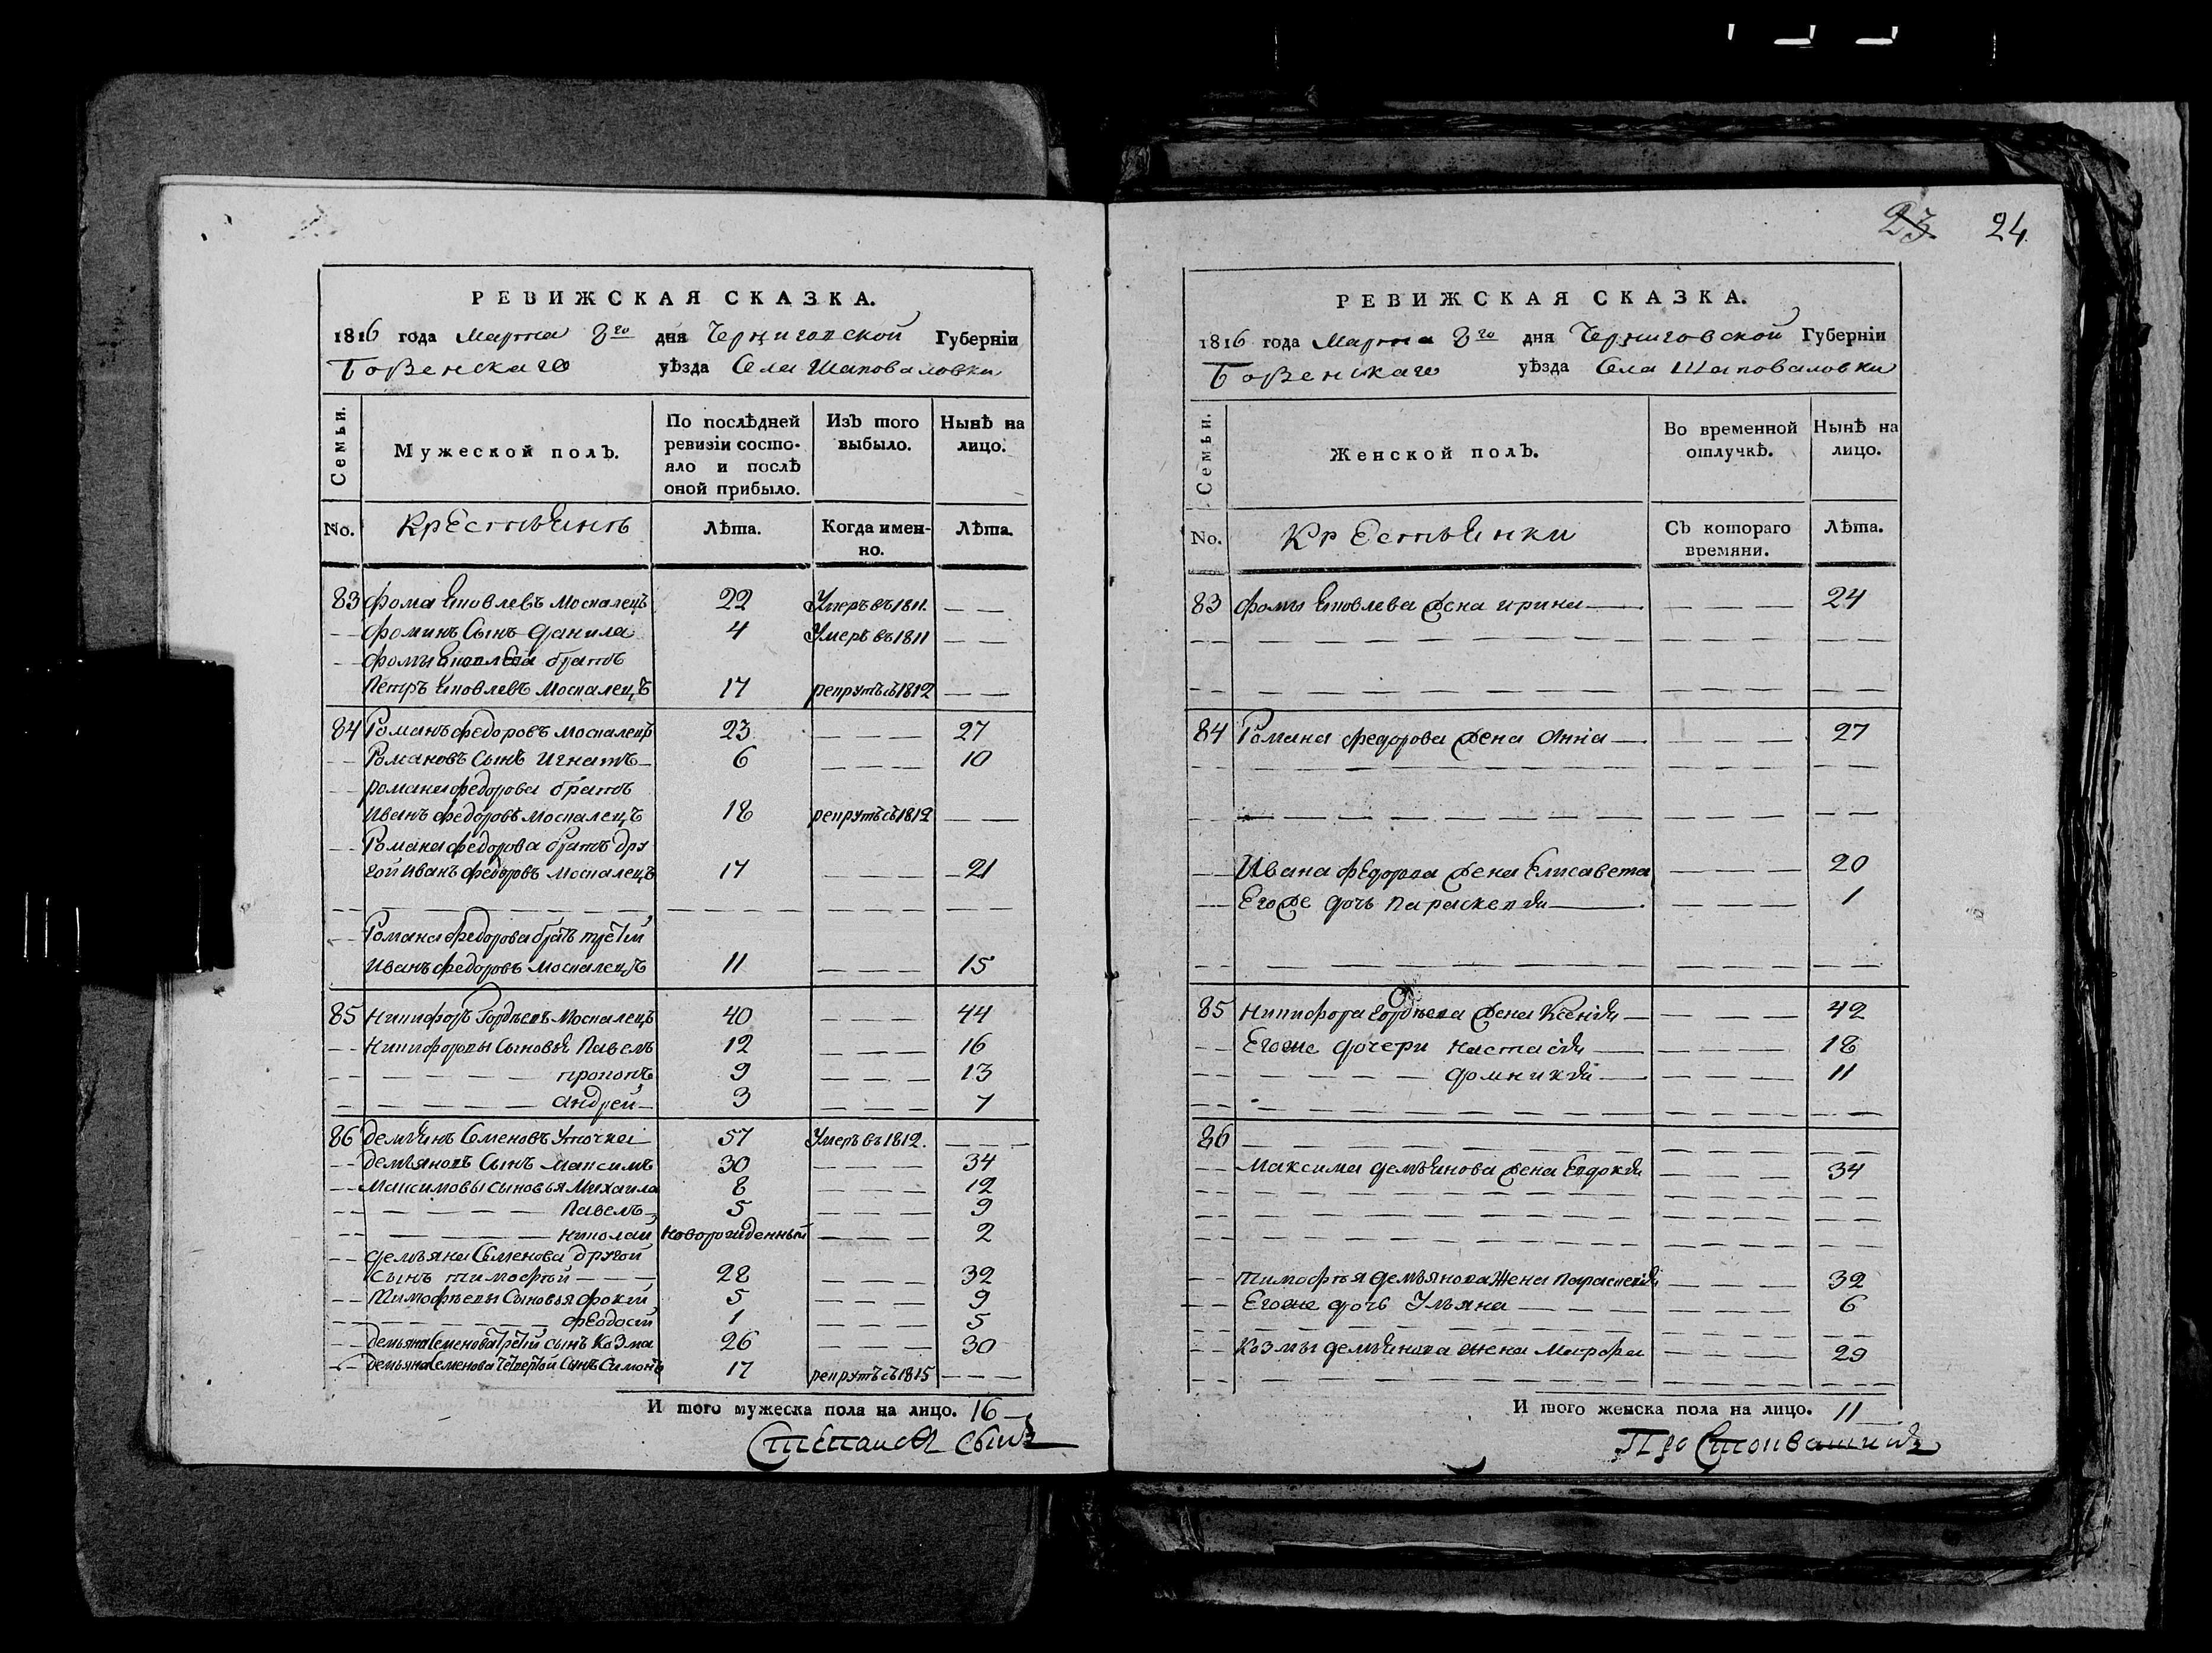 РЕВИЖСКАЯ СКАЗКА.
1816 года Марта 8го дня Черниговской Губерніи
Борзенскаго уѣзда Села Шаповаловки
Семьи.
Мужеской полъ.
По послѣдней ревизіи состояло и послѣ оной прибыло.
Изъ того выбыло.
Нынѣ на лицо.
No. Крестьянъ Лѣта. Когда именно. Лѣта.
83 Фома Яковлевъ Москалецъ 22 Умеръ въ 1811.
Фоминъ Сынъ Данила 4 Умеръ въ 1811
Фомы Яковлева братъ
Петръ Яковлевъ Москалецъ 17 рекрутъ съ 1812
84 Романъ Федоровъ Москалецъ 23 27
Романовъ Сынъ Игнатъ 6 10
романа федорова братъ
Иванъ федоровъ Москалецъ 18 рекрутъ съ 1812
Романа федорова братъ дру
гой Иванъ федоровъ Москалецъ 17 21
Романа Федорова братъ третій
Иванъ федоровъ Москалецъ 11 15
85 Никифоръ Гордѣевъ Москалецъ 40 44
Никифоровы Сыновья Павелъ 12 16
прокопъ 9 13
андрей 3 7
86 демьянъ Семеновъ Уточка 57 Умеръ въ 1812.
демьяновъ Сынъ максимъ 30 34
Максимовы сыновья Михаила 8 12
Павелъ 5 9
николай новорожденный 2
демьяна Семенова другой
сынъ тимофѣй 28 32
Тимофѣевы Сыновья фокій 5 9
феодосій 1 5
демьяна Семенова Третій сынъ Козма 26 30
демьяна Семенова Четвертой Сынъ Симонъ 17 рекрутъ съ 1815
И того мужеска пола на лицо. 16
Сынъ
23 24
РЕВИЖСКАЯ СКАЗКА.
1816 года Марта 8го дня Черниговской Губерніи
Борзенскаго уѣзда Села Шаповаловки
Семьи.
Женской полъ.
Во временной отлучкѣ.
Нынѣ на лицо.
No. Крестьянки Съ котораго времяни. Лѣта.
83 фомы Яковлева жена ирина 24
84 Романа федорова жена Анна 27
Ивана Федорова жена Елисавета 20
Егоже дочь параскевия 1
85 Никифора Гордѣева жена Ксенія 42
Егоже дочери настасія 18
домникія 11
86
Максима демьянова жена Евдокія 34
Тимофѣя демьянова Жена параскевія 32
Егоже дочь Ульяна 6
Козмы демьянова жена Марфа 29
И того женска пола на лицо. 11